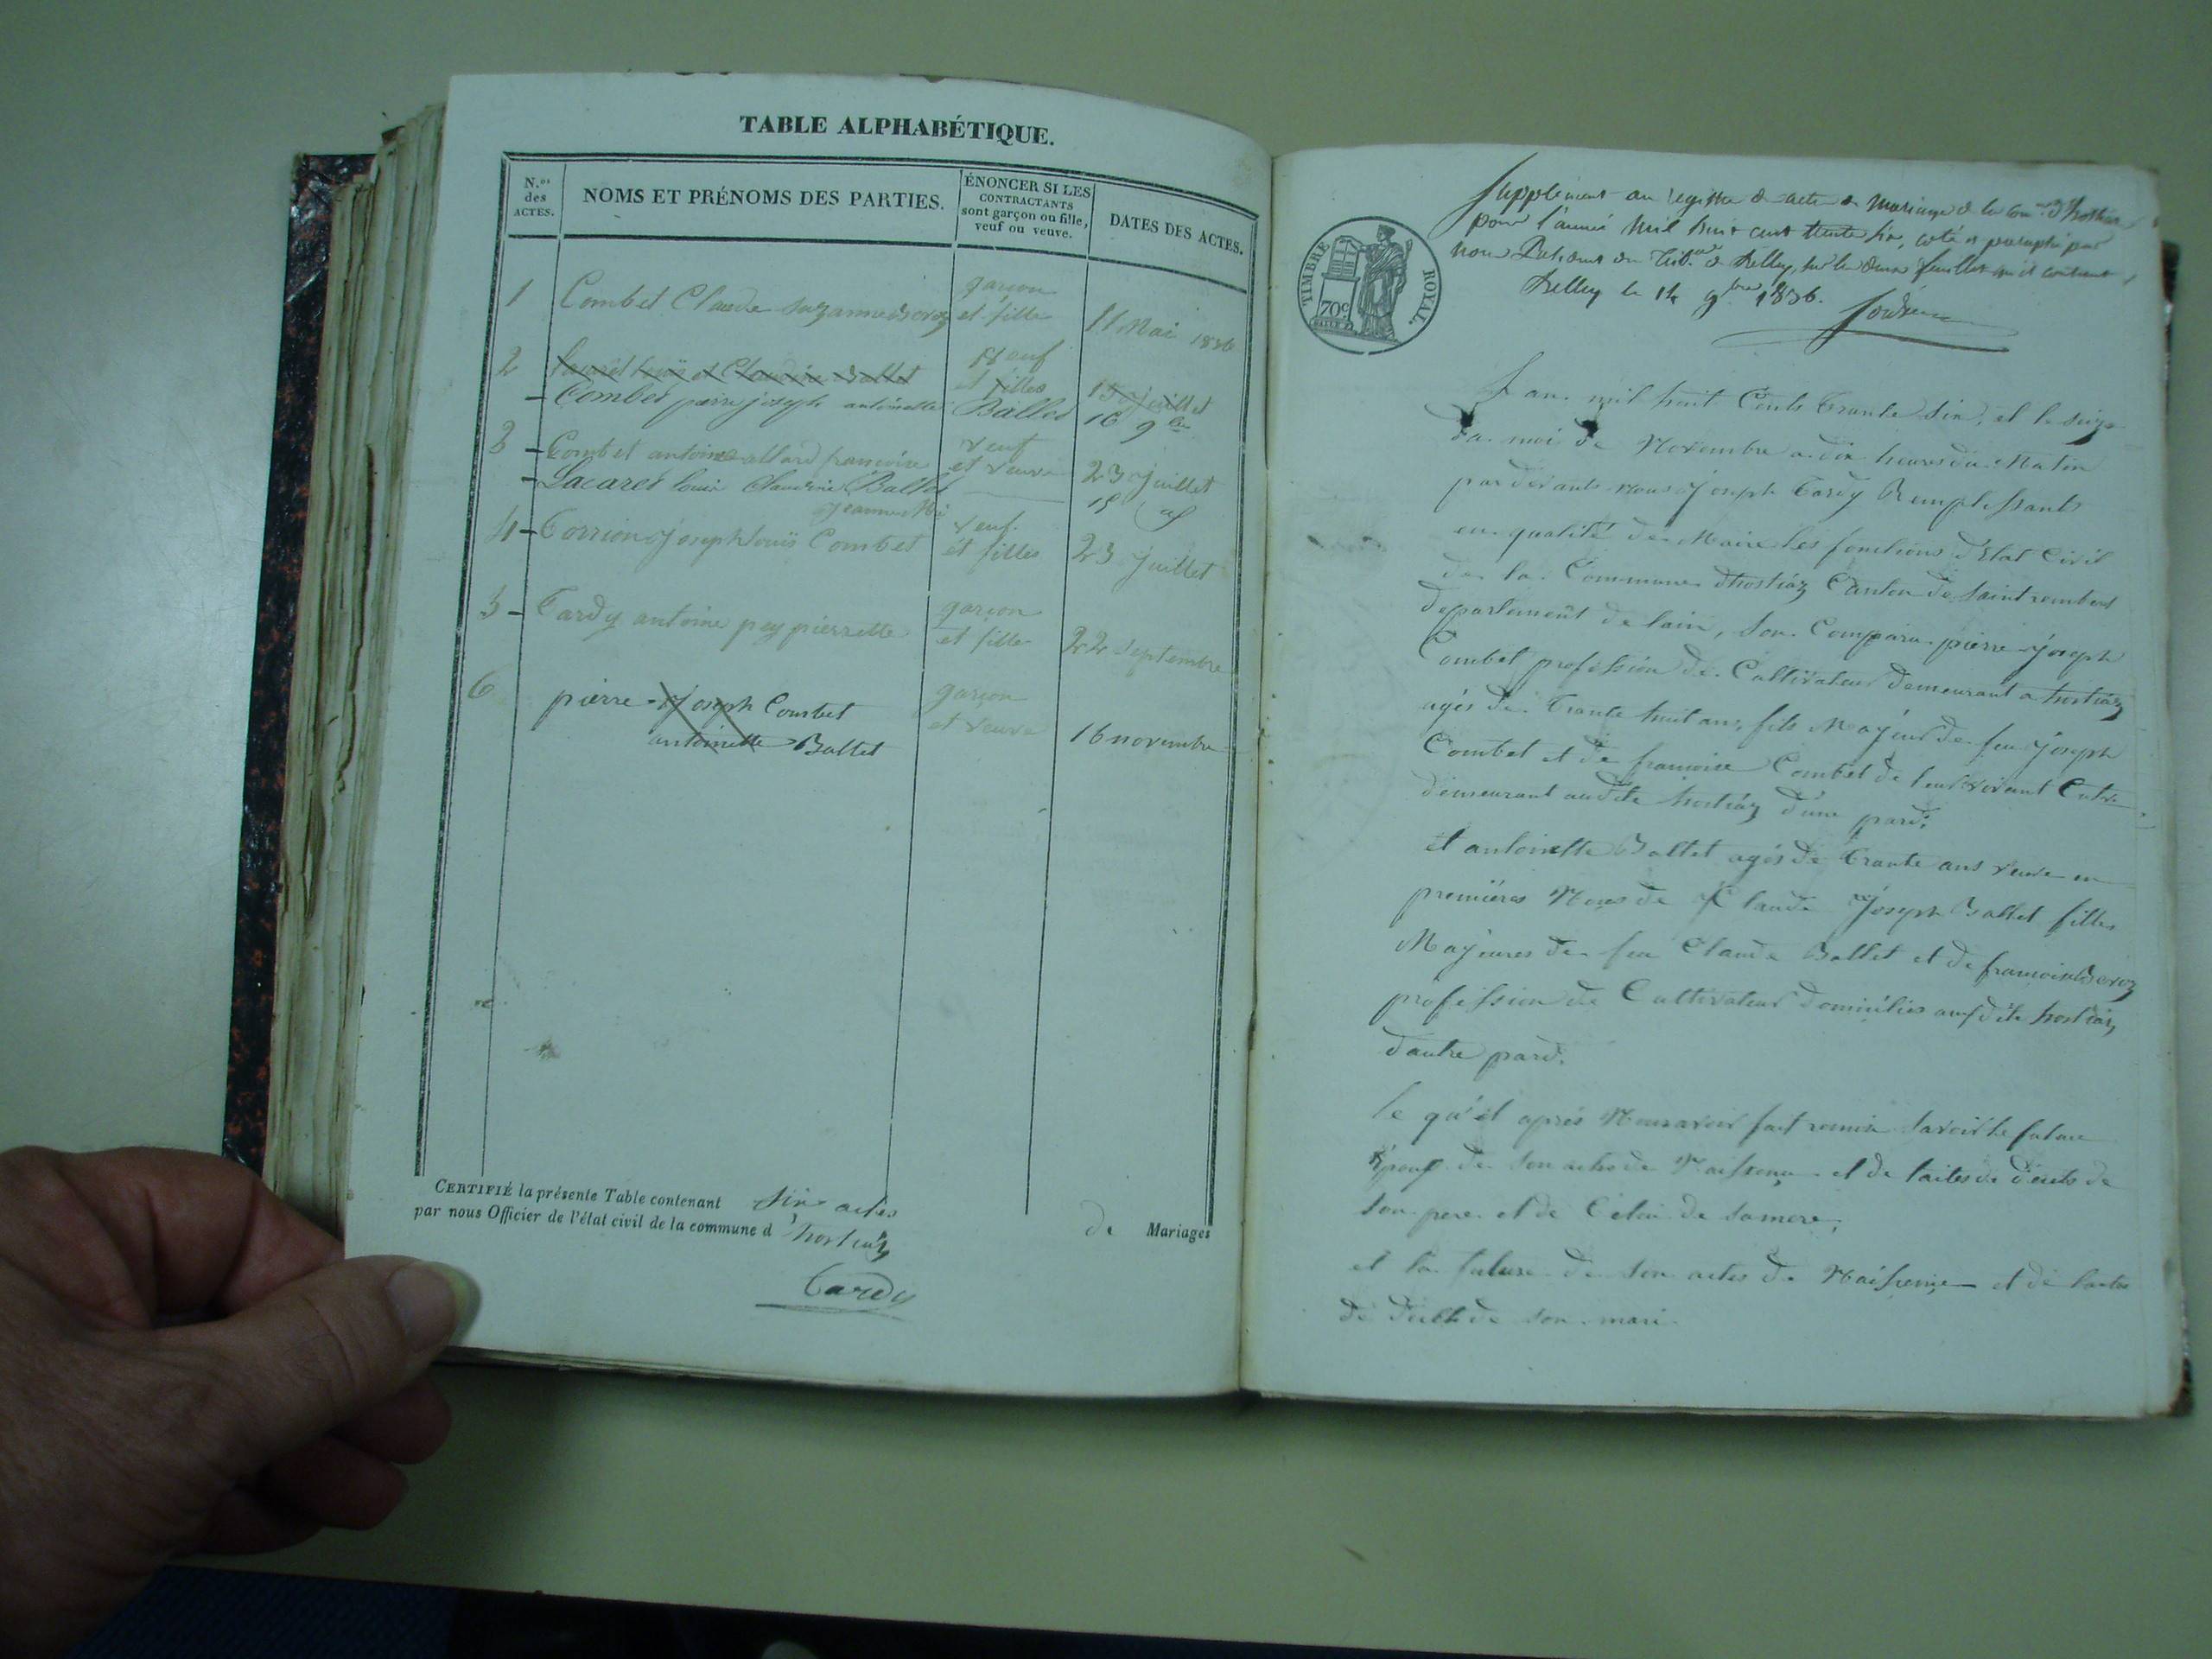 TABLE ALPHABÉTIQUE.
N.os des ACTES.
NOMS ET PRÉNOMS DES PARTIES.
ÉNONCER SI LES CONTRACTANTS sont garçon ou fille, veuf ou veuve.
DATES DES ACTES.
1 Combet Claude Suzanne Beroz garçon et fille 11 Mai 1836
2 Claudine Ballet veuf et filles 15 juillet
Combet pierre joseph antoinette Ballet 16 9bre
3 Combet antoine allard francoise veuf et veuve 23 juillet
Lacaret louis Claudine Ballet 15
jeanne Mie
4 Torrion joseph louis Combet veuf et filles 23 juillet
5 Tardy antoine pey pierrette garçon et fille 22 septembre
6 pierre joseph Combet garçon
antoinette Ballet et veuve 16 novembre
CERTIFIÉ la présente Table contenant six actes de Mariages
par nous Officier de l'état civil de la commune d'hostiáz
Tardy
TIMBRE ROYAL.
70c
Supplément au registre d'acte de mariage de la Come d'hostiaz
pour l'année mil huit cent trente six, coté et paraphé par
nous Président du Tribal de Belley, sur les deux feuillets qu'il contient
Belley le 14 9bre 1836.
L'an mil huit Cents Trante Six, et le Seize
du moi de Novembre a dix heures du Matin
par devants nous joseph Tardy Remplissants
en qualité de Maire les fonctions d'Etat Civil
de la Commune dhostiáz Canton de Saint rembert
departement de lain, Son Comparu pierre joseph
Combet profession de Cultivateur demeurant a hostiáz
agés de Trante huit ans, fils Majeur de feu joseph
Combet et de francoise Combet de leur vivant Cultr
demeurant audite hostiáz d'une pard.
et antoinette Ballet agés de Trante ans veuve en
premières Noces de Claude joseph Ballet filles
Majeures de feu Claude Ballet et de francoise Beroz
profession de Cultivateur domiciliés audite hostiáz
dautre pard.
le qu'el après Nous avoir fait remise savoir le future
Epoux de son actes de Naissence et de lactes de décès de
son pere et de Celui de sa mere,
et la future de son actes de Naissence et de lacte
de décès de son mari